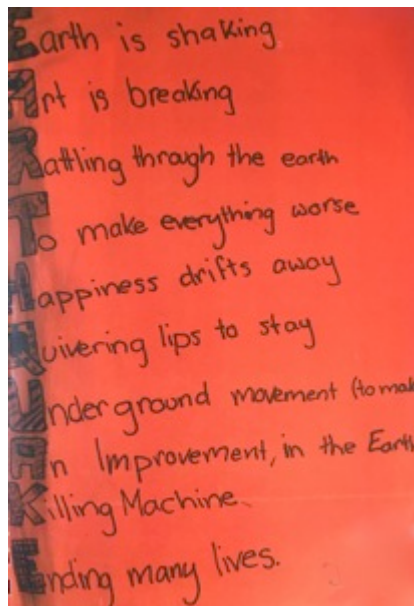 Earth is shaking
Art is breaking
Rattling through the earth
To make everything worse
Happiness drifts away
Quivering lips to stay
Underground movement (to mak
An Improvement, in the Earth
Killing Machine.
Ending many lives.